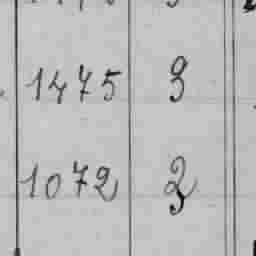 1475 3
1072 2